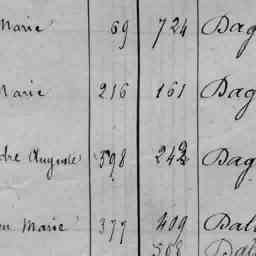 Marie 69 724 Dag
Marie 216 161 Dag
dre Auguste 598 242 Dag
Marie 377 409 Dal
508 Dal